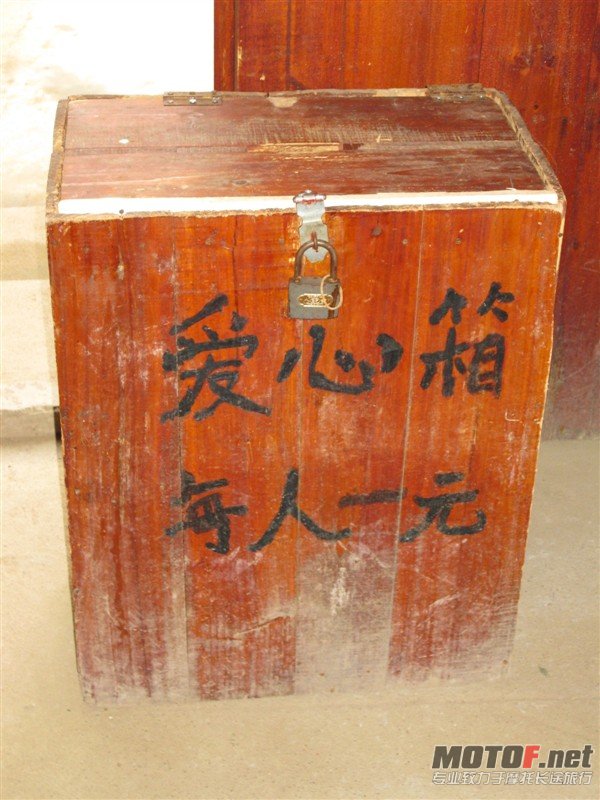 爱心箱
每人一元
MOTOF.net
专业致力于摩托长途旅行